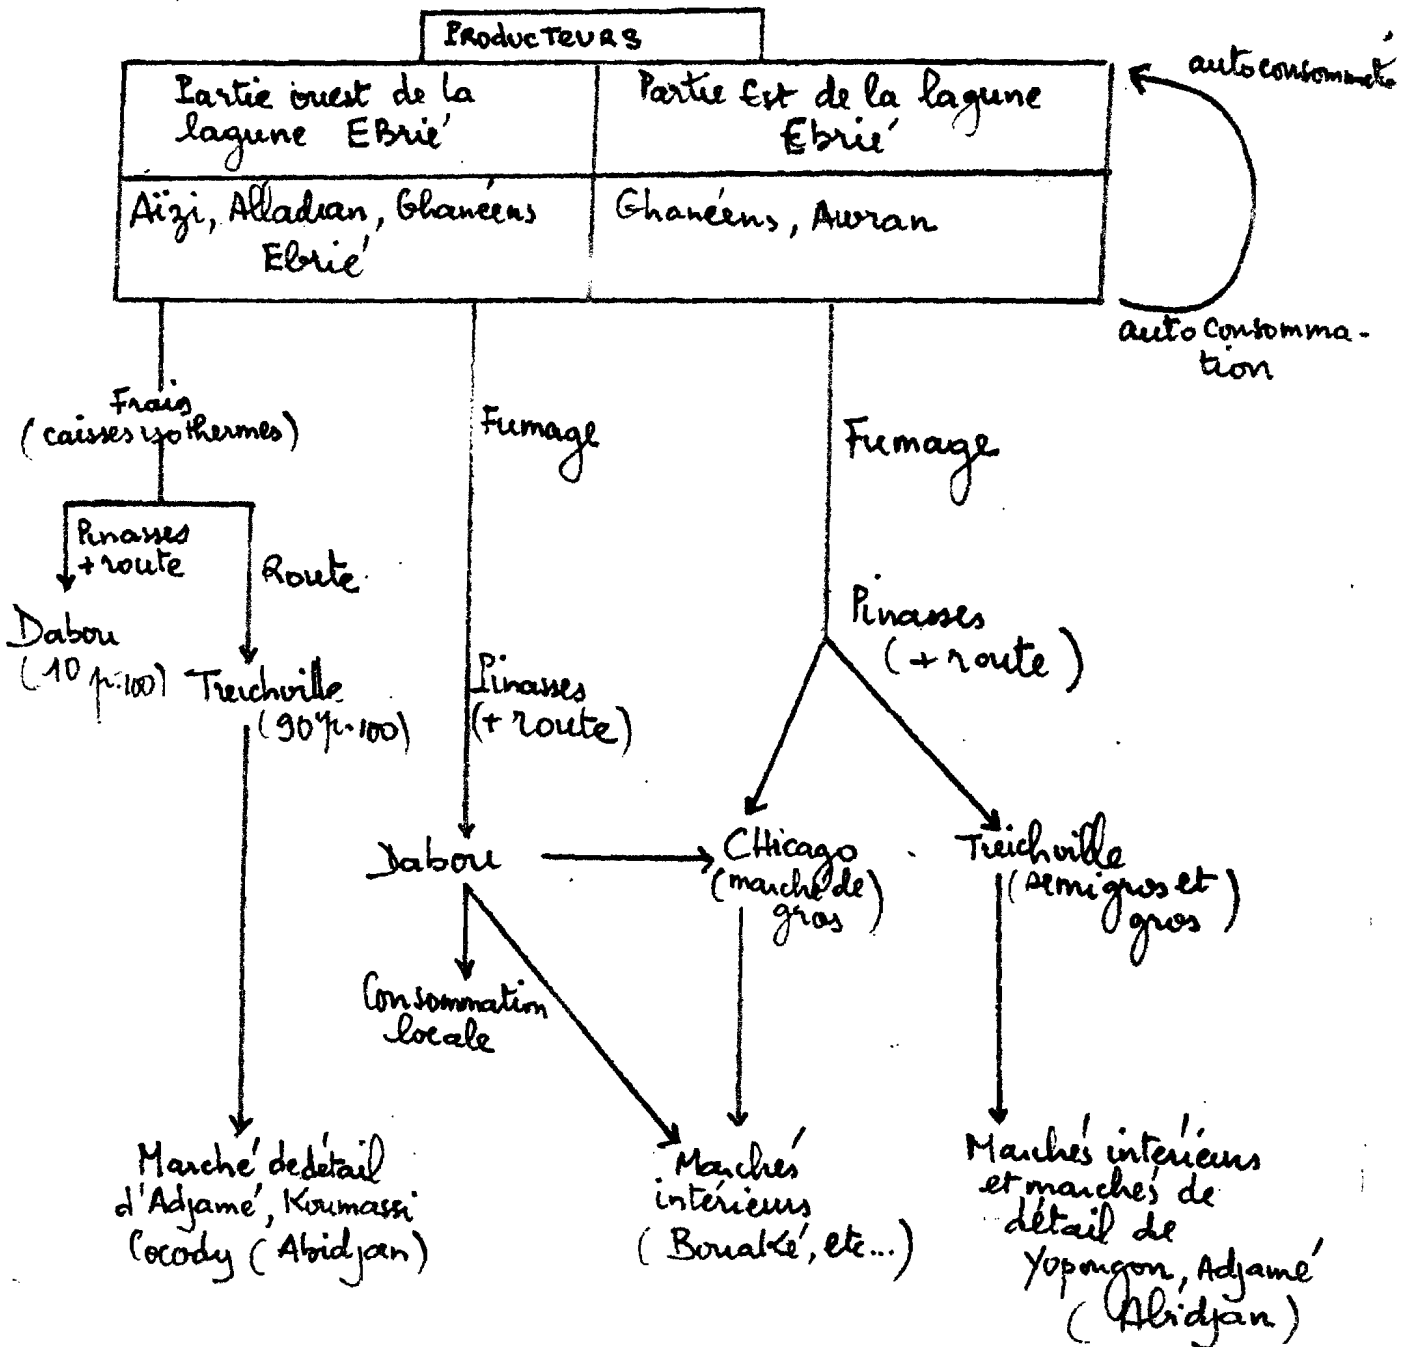 PRODUCTEURS
autoconsommaté
Partie ouest de la
lagune EBrié
Partie Est de la lagune
Ebrié
Aïzi, Alladian, Ghanéens
Ebrié
Ghanéens, Awran
autoconsomma-
tion
Frais
(caisses isothermes)
Fumage
Fumage
Pinasses
+ route
Route
Dabou
(10 p.100)
Treichville
(90 p.100)
Pinasses
(+ route)
Pinasses
(+ route)
Dabou
CHicago
(marché de
gros)
Treichville
(semi gros et
gros)
Consommation
locale
Marché de détail
d'Adjamé, Koumassi
Cocody (Abidjan)
Marchés
intérieurs
(Bouaké, etc...)
Marchés intérieurs
et marchés de
détail de
Yopougon, Adjamé
(Abidjan)